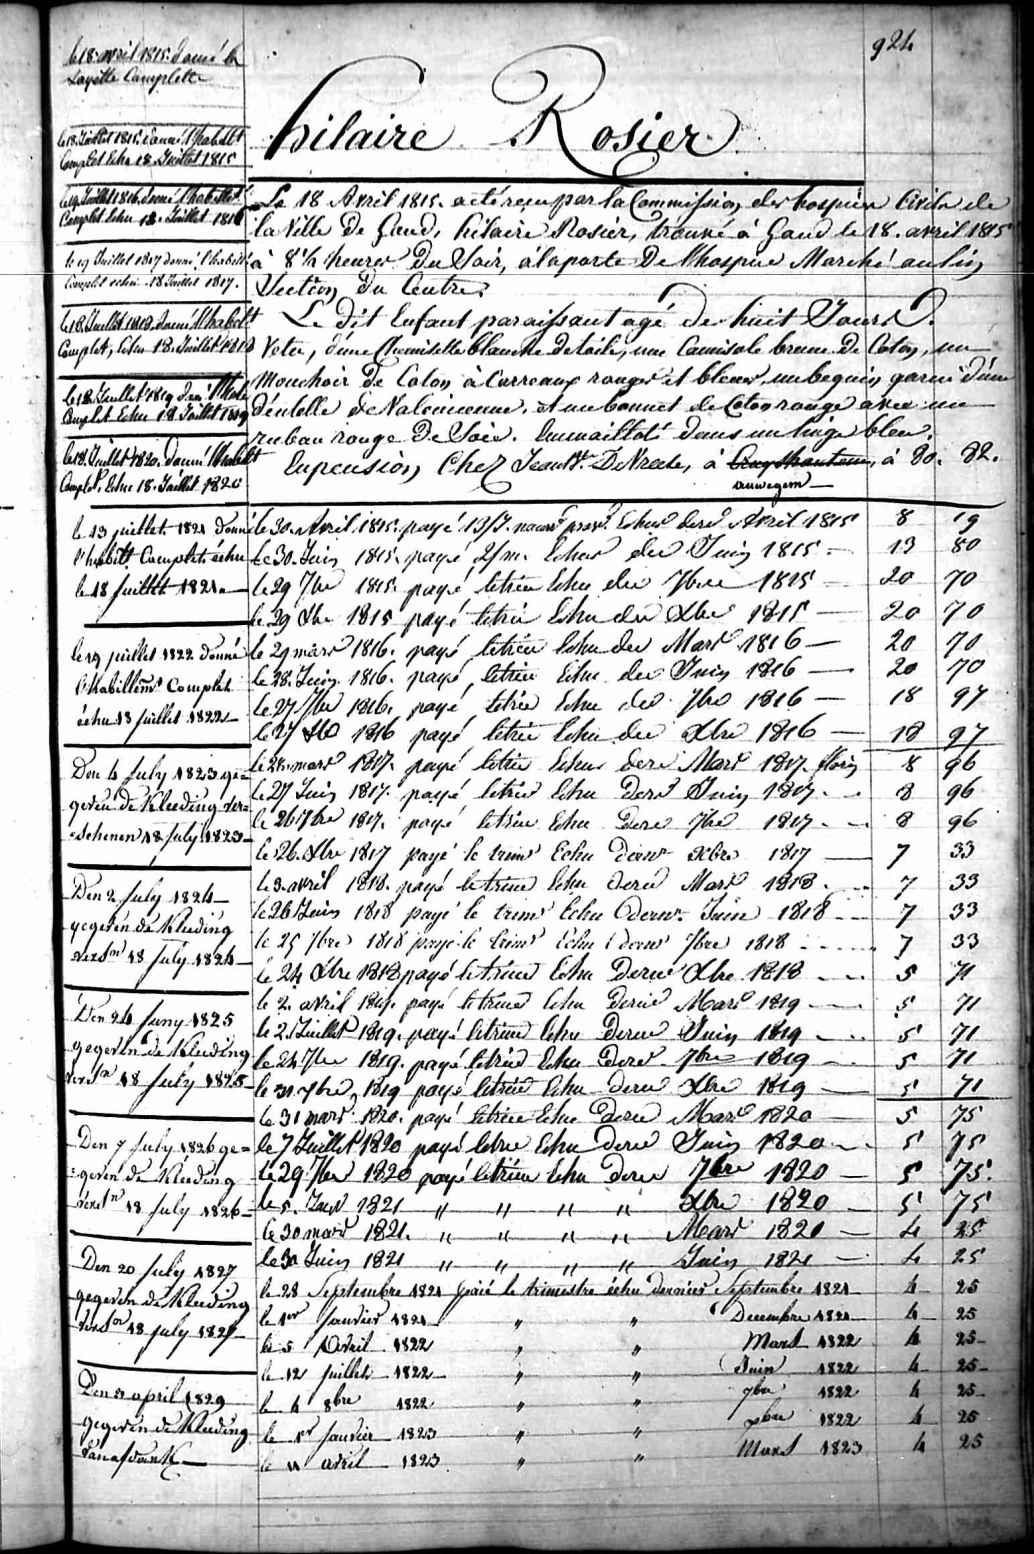 924
le 18 avril 1815. donné la
Layette Complette
le 18 Juillet 1815. donné l'habillt
Complet Echu 18 Juillet 1815
le 19 Juillet 1816. donné l'habillt
Complet Echu 18. Juillet 1816
le 17 Juillet 1817 donné l'habillt
Complet echu 18 Juillet 1817.
le 18. Juillet 1818. donné l'habillt
Complet, Echu 18. Juillet 1818
le 18 Juillet 1819 donné l'habillt
Complet Echu 18 Juillet 1819
le 18. Juillet 1820. donné l'habillt
Complet. Echu 18. Juillet 1820
le 13 juillet 1821 donné
l'habillt Complet échu
le 18 juillet 1821
le 19 juillet 1822 donné
l'habillemt Complet
échu 18 juillet 1822
Den 4 July 1823 ge=
geven de Kleeding ver=
=schenen 18 July 1823
Den 2 July 1824
gegeven de Kleeding
versn 18 July 1824
Den 24 Juny 1825
gegeven de Kleeding
versn 18 July 1825
Den 7 July 1826 ge=
=geven de Kleeding
versn 18 July 1826
Den 20 July 1827
gegeven de Kleeding
versn 18 July 1827
Den april 1829
gegeven de Kleeding
hilaire Rosier.
Le 18 Avril 1815. a été reçu par la Commission des hospices Civils de
la Ville de Gand, hilaire Rosier, trouvé à Gand le 18. avril 1815
à 8 ½ heures Du Soir, à la porte De l'hospice Marché au lin,
Section Du Centre.
Le Dit Enfant paraissant agé de huit Jours.
Vetu, d'une Chemisette blanche de toile, une Camisole brune De Coton, un
Mouchoir De Coton à Carreaux rouges et bleus, un beguin garni d'une
déntelle de Valencienne, et un bonnet de Coton rouge avec un
ruban rouge De Soie. Emmailloté dans un linge bleu.
En pension Chez Jean Bte. De Vreese, à à 80. 82.
auwegem
le 30. Avril 1815. payé 13/J. Echu Avril 1815 8 19
le 30. Juin 1815. payé 2/m. Echus der Juin 1815 13 80
le 29 7bre 1815. payé letrim Echu der 7bre 1815 20 70
le 29 Xbre 1815 payé letrim Echu der Xbre 1815 20 70
le 29 mars 1816. payé letrim Echu der Mars 1816 20 70
le 28. Juin 1816. payé letrim Echu der Juin 1816 20 70
le 27 7bre 1816. payé letrim Echu der 7bre 1816 18 97
le 27 Xbre 1816 payé letrim Echu der Xbre 1816 18 97
le 28. mars 1817. payé letrim Echu dere Mars 1817. flor 8 96
le 27 Juin 1817. payé letrim Echu dere Juin 1817 8 96
le 26 7bre 1817. payé letrim Echu dere 7bre 1817 8 96
le 26. Xbre 1817 payé le trimr Echu dernr xbre 1817 7 33
le 3. avril 1818. payé letrim Echu dere Mars 1818. 7 33
le 26 Juin 1818 payé le trimr Echu dernr Juin 1818 7 33
le 25 7bre 1818 payé le trimr Echu dernr 7bre 1818 7 33
le 24 Xbre 1818 payé letrim Echu derne Xbre 1818 5 71
le 2. avril 1819. payé letrim Echu derne Mars 1819 5 71
le 2. Juillet 1819. payé letrim Echu derne Juin 1819 5 71
le 24 7bre 1819. payé letrim Echu dere 7bre 1819 5 71
le 31 Xbre 1819 payé letrim Echu derne Xbre 1819 5 71
le 31 mars 1820. payé letrim Echu Derne Mars 1820 5 75
le 7 Juillet 1820 payé letrim Echu dere Juin 1820 5 75
le 29 7bre 1820 payé letrim Echu dere 7bre 1820 5 75.
le 5. Janr 1821 " " " " Xbre 1820 5 75
le 30 mars 1821. " " " " Mars 1821 4 25
le 30 Juin 1821 " " " " Juin 1821 4 25
le 28 Septembre 1821 paié le trimestre échu dernier Septembre 1821 4 25
le 1er Janvier 1821 " " Decembre 1821 4 25
le 5 Avril 1822 " " Mars 1822 4 25
le 12 juillet 1822 " " Juin 1822 4 25
le 4 8bre 1822 " " 7bre 1822 4 25
le 1er Janvier 1823 " " xbre 1822 4 25
le 11 avril 1823 " " Mars 1823 4 25